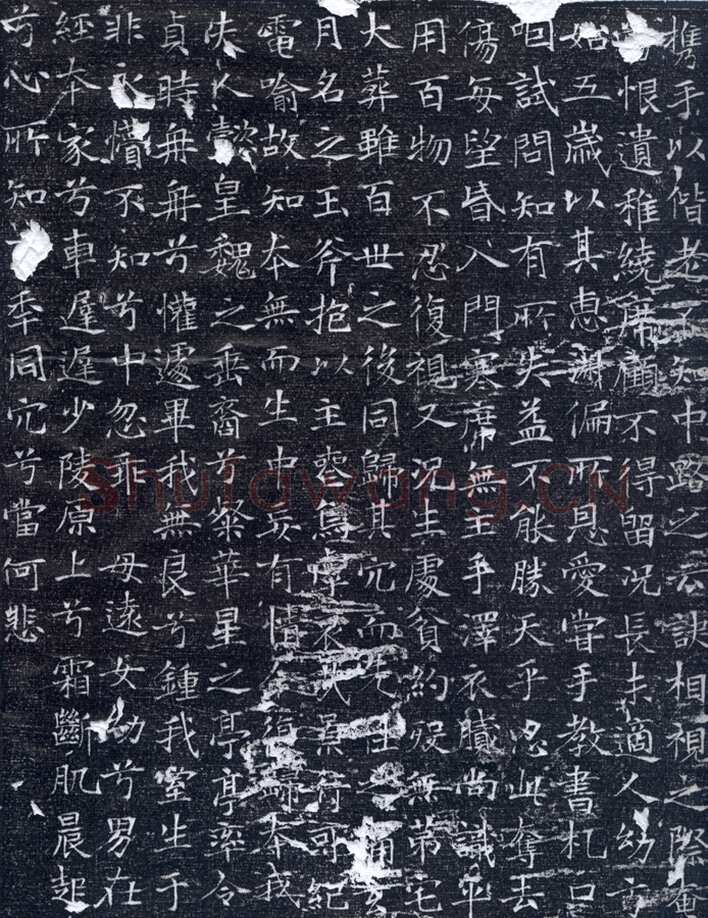 攜手以偕老不知中路之云訣相視之際奄
恨遺稚繞席顧不得留況長未適人幼方
始五歲以其惠淑偏所恩愛嘗手教書札口
咽試問知有所失益不能勝天乎忍此奪去
傷每望昏入門寒席無主手澤衣膩尚識平
用百物不忍復視又況生處貧約歿無第宅
大葬雖百世之後同歸其穴而先往之痛玄
月名之玉斧抱以主喪烏虖哀哉景行可紀
電喻故知本無而生中妄有情今復歸本我
夫人懿皇魏之垂裔兮粲華星之亭亭率令
貞時冉冉兮懽遽畢我無良兮鍾我室生于
非永惜不知兮中忽乖母遠女幼兮男在
經本家兮車遲遲少陵原上兮霜斷肌晨起
兮心所知年同穴兮當何悲
Shufawang.CN